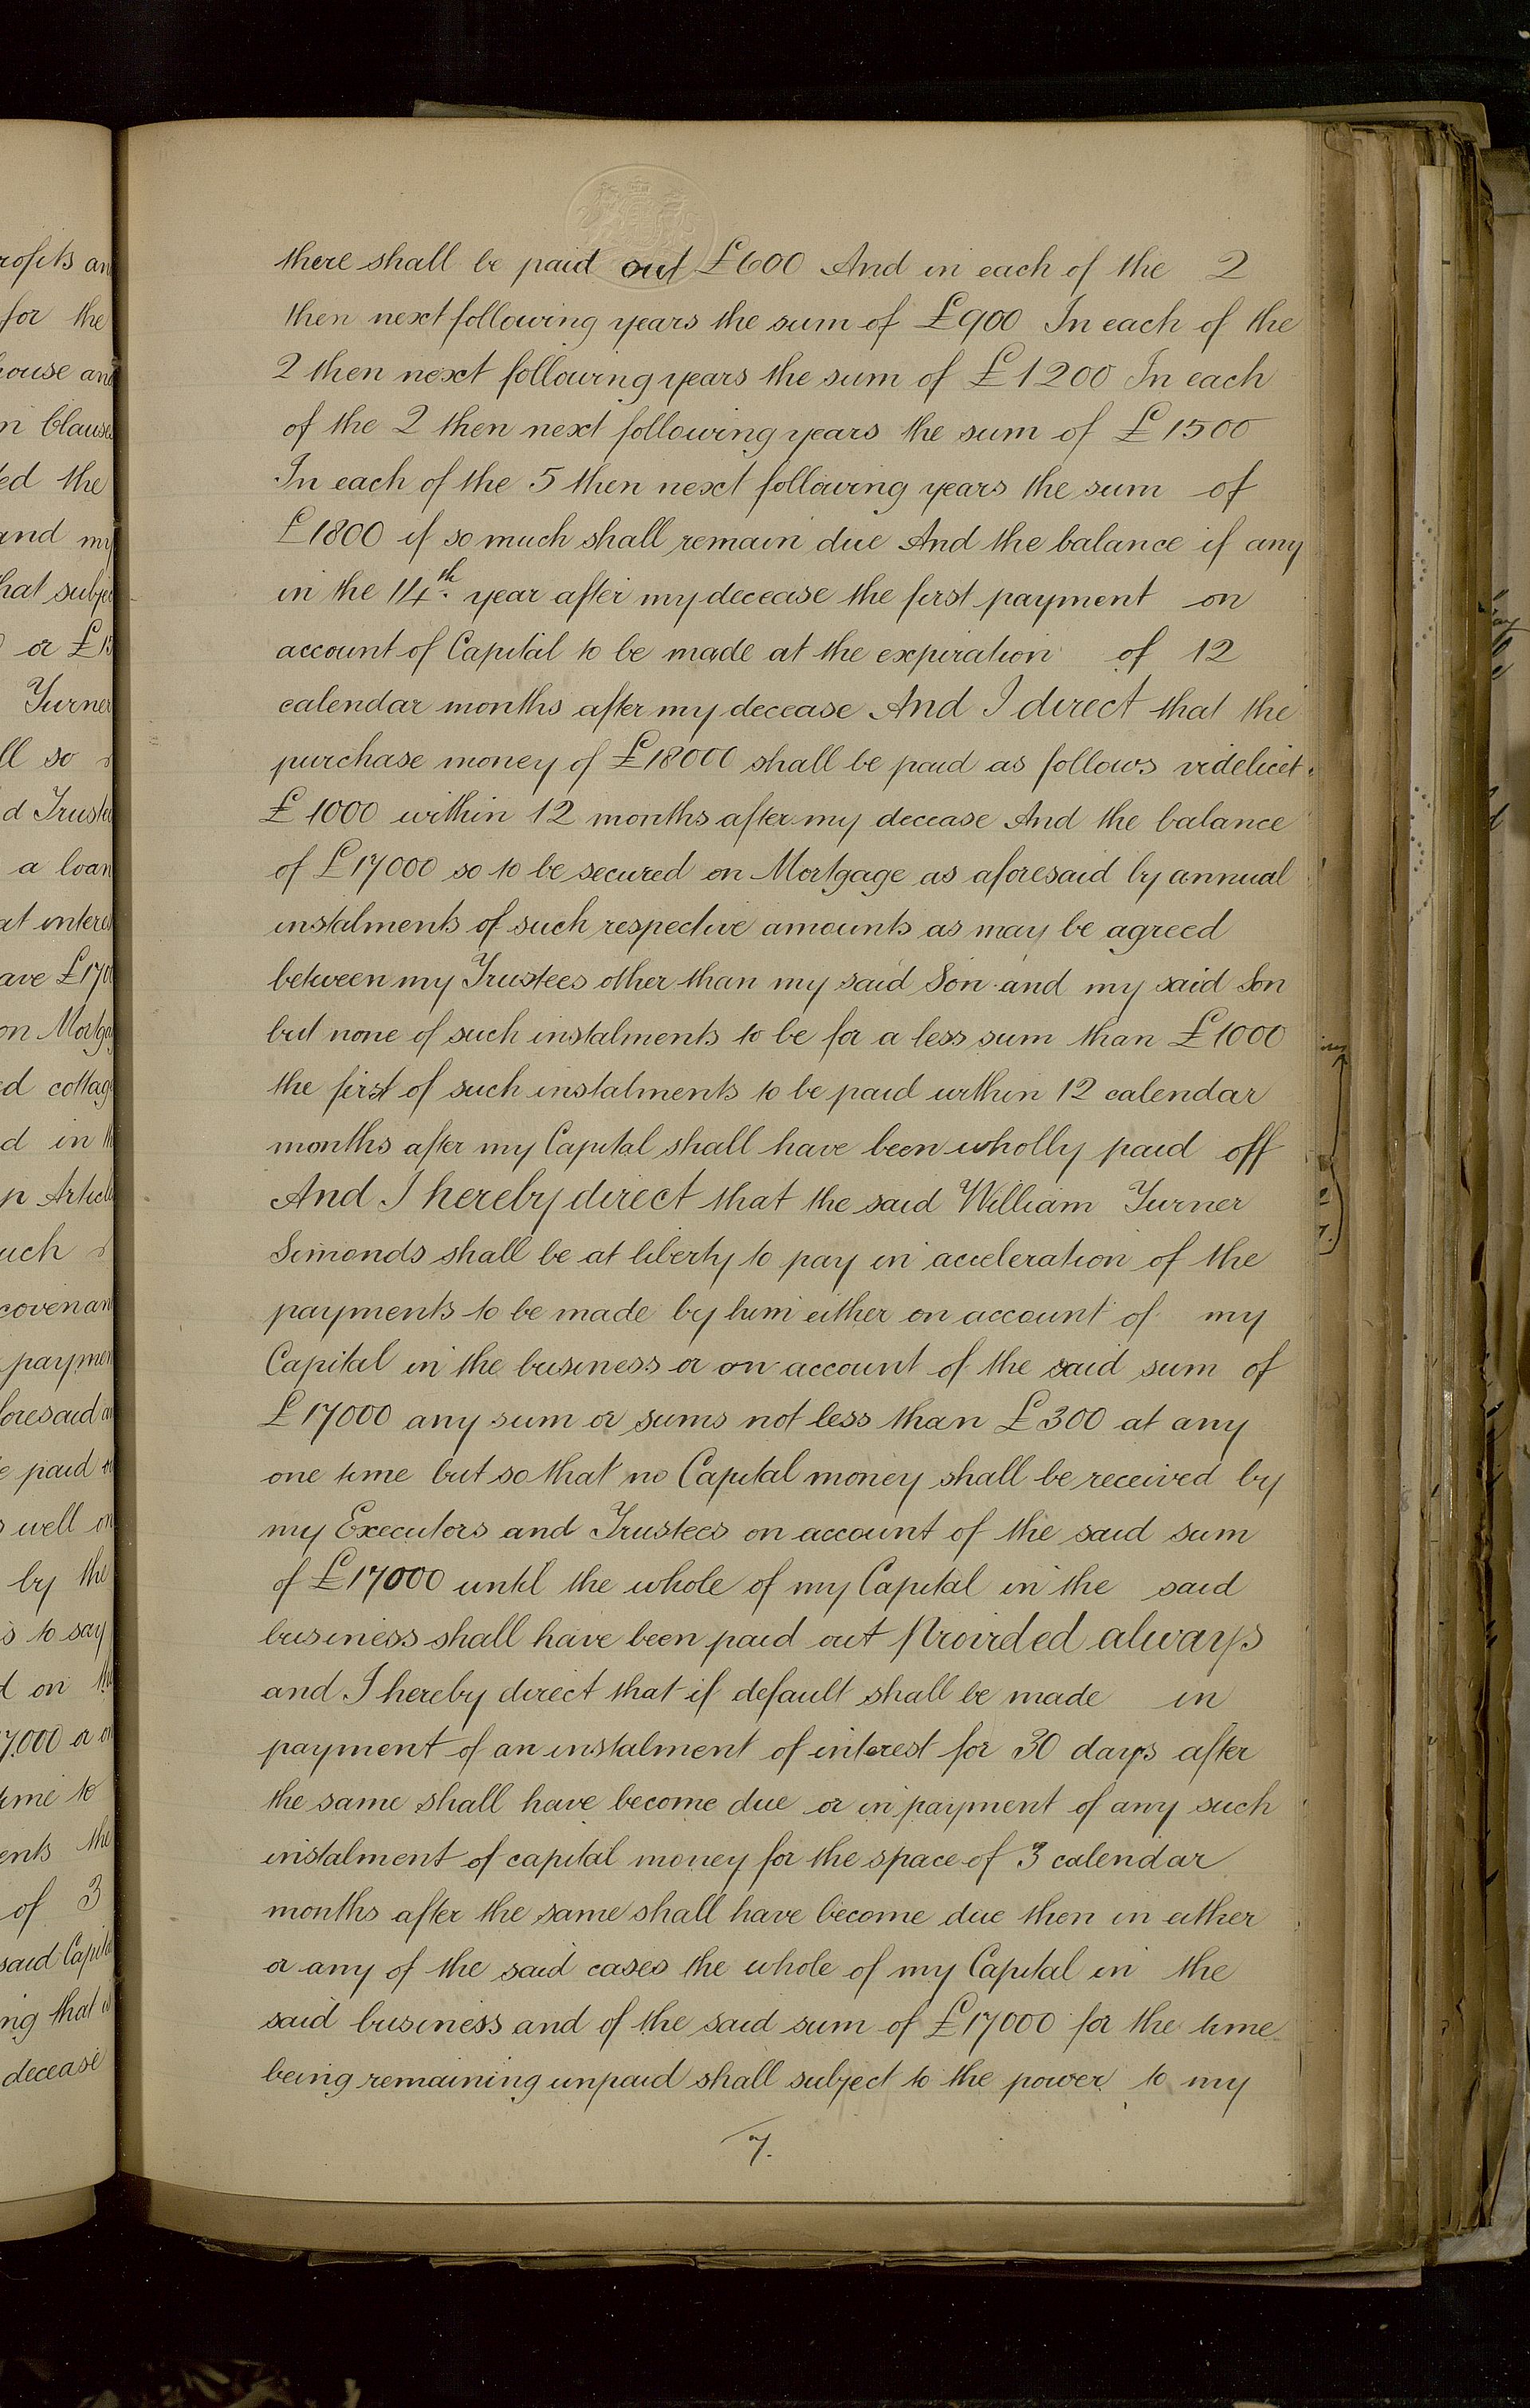 there shall be paid out £600 And in each of the 2
then next following years the sum of £900 In each of the
2 then next following years the sum of £1200 In each
of the 2 then next following years the sum of £1500
In each of the 5 then next following years the sum of
£1800 if so much shall remain due And the balance if any
in the 14th. year after my decease the first payment on
account of Capital to be made at the expiration of 12
calendar months after my decease And I direct that the
purchase money of £18000 shall be paid as follows videlicet
£1000 within 12 months after my decease And the balance
of £17000 so to be secured on Mortgage as aforesaid by annual
instalments of such respective amounts as may be agreed
between my Trustees other than my said Son and my said Son
but none of such instalments to be for a less sum than £1000
the first of such instalments to be paid within 12 calendar
months after my Capital shall have been wholly paid off
And I hereby direct that the said William Turner
Simonds shall be at liberty to pay in acceleration of the
payments to be made by him either on account of my
Capital in the business or on account of the said sum of
£17000 any sum or sums not less than £300 at any
one time but so that no Capital money shall be received by
my Executors and Trustees on account of the said sum
of £17000 until the whole of my Capital in the said
business shall have been paid out Provided always
and I hereby direct that if default shall be made in
payment of an instalment of interest for 30 days after
the same shall have become due or in payment of any such
instalment of capital money for the space of 3 calendar
months after the same shall have become due then in either
or any of the said cases the whole of my Capital in the
said business and of the said sum of £17000 for the time
being remaining unpaid shall subject to the power to my
7.
for the
ed the
and my
Turner
a loan
by the
s to say
of 3
decease